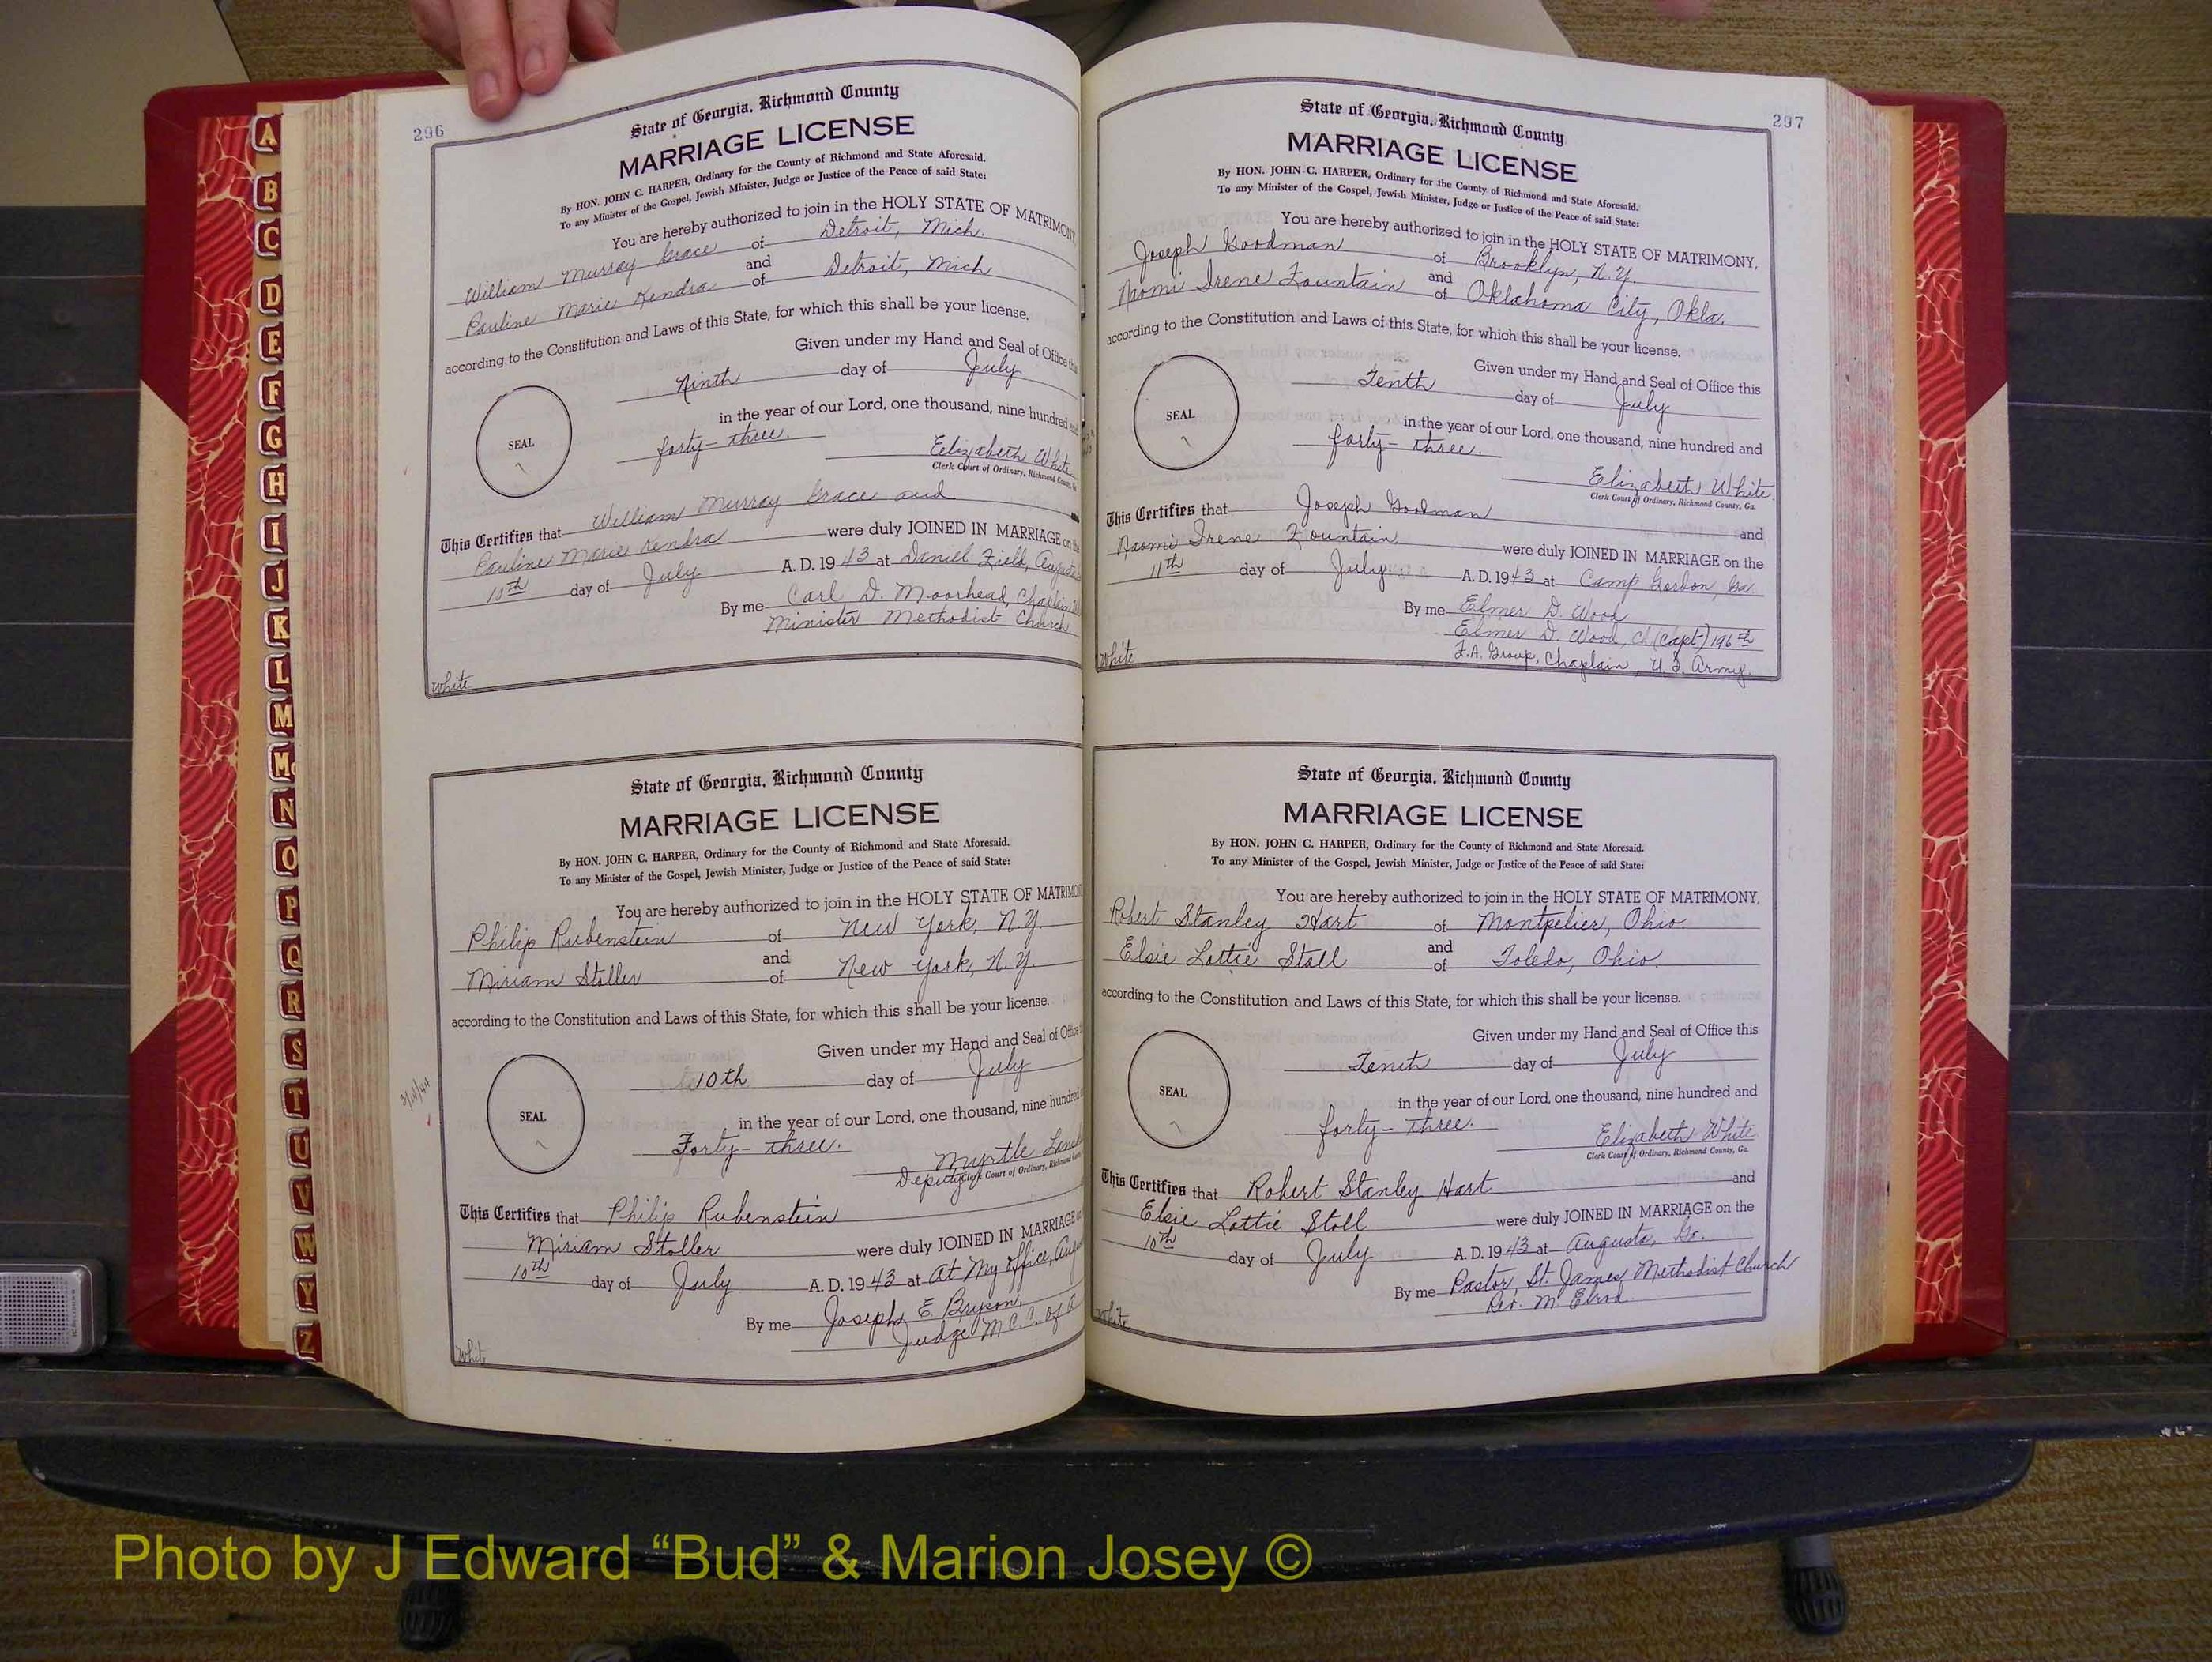 296
State of Georgia, Richmond County
MARRIAGE LICENSE
By HON. JOHN C. HARPER, Ordinary for the County of Richmond and State Aforesaid.
To any Minister of the Gospel, Jewish Minister, Judge or Justice of the Peace of said State:
You are hereby authorized to join in the HOLY STATE OF MATRIMONY,
William Murray Grace of Detroit, Mich.
and
Pauline Marie Kendra of Detroit, Mich
according to the Constitution and Laws of this State, for which this shall be your license.
Given under my Hand and Seal of Office this
Ninth day of July
SEAL
in the year of our Lord, one thousand, nine hundred and
forty-three.
Elizabeth White
Clerk Court of Ordinary, Richmond County, Ga.
This Certifies that William Murray Grace and
Pauline Marie Kendra were duly JOINED IN MARRIAGE on the
10th day of July A. D. 1943 at Daniel Field, Augusta
By me Carl D. Moorhead, Chaplain
Minister Methodist Church
White
State of Georgia, Richmond County
MARRIAGE LICENSE
By HON. JOHN C. HARPER, Ordinary for the County of Richmond and State Aforesaid.
To any Minister of the Gospel, Jewish Minister, Judge or Justice of the Peace of said State:
You are hereby authorized to join in the HOLY STATE OF MATRIMO
Philip Rubenstein of New York, N.Y.
and
Miriam Stoller of New York, N.Y.
according to the Constitution and Laws of this State, for which this shall be your license.
Given under my Hand and Seal of Office
10th day of July
SEAL
3/14/44
in the year of our Lord, one thousand, nine hundred
Forty-three.
Myrtle
Deputy Clerk Court of Ordinary, Richmond
This Certifies that Philip Rubenstein
Miriam Stoller were duly JOINED IN MARRIAGE
10th day of July A. D. 1943 at At My office,
By me Joseph E. Bryson,
Judge M.C.C. of A
White
297
State of Georgia, Richmond County
MARRIAGE LICENSE
By HON. JOHN C. HARPER, Ordinary for the County of Richmond and State Aforesaid.
To any Minister of the Gospel, Jewish Minister, Judge or Justice of the Peace of said State:
You are hereby authorized to join in the HOLY STATE OF MATRIMONY,
Joseph Goodman of Brooklyn, N.Y.
and
Naomi Irene Fountain of Oklahoma City, Okla.
according to the Constitution and Laws of this State, for which this shall be your license.
Given under my Hand and Seal of Office this
Tenth day of July
SEAL
in the year of our Lord, one thousand, nine hundred and
forty-three.
Elizabeth White
Clerk Court of Ordinary, Richmond County, Ga.
This Certifies that Joseph Goodman and
Naomi Irene Fountain were duly JOINED IN MARRIAGE on the
11th day of July A. D. 1943 at Camp Gordon, Ga.
By me Elmer D. Wood
Elmer D. Wood, Ch (Capt) 196th
F.A. Group, Chaplain, U.S. Army.
White
State of Georgia, Richmond County
MARRIAGE LICENSE
By HON. JOHN C. HARPER, Ordinary for the County of Richmond and State Aforesaid.
To any Minister of the Gospel, Jewish Minister, Judge or Justice of the Peace of said State:
You are hereby authorized to join in the HOLY STATE OF MATRIMONY,
Robert Stanley Hart of Montpelier, Ohio.
and
Elsie Lottie Stall of Toledo, Ohio.
according to the Constitution and Laws of this State, for which this shall be your license.
Given under my Hand and Seal of Office this
Tenth day of July
SEAL
in the year of our Lord, one thousand, nine hundred and
forty-three.
Elizabeth White
Clerk Court of Ordinary, Richmond County, Ga.
This Certifies that Robert Stanley Hart and
Elsie Lottie Stoll were duly JOINED IN MARRIAGE on the
10th day of July A. D. 1943 at Augusta, Ga.
By me Pastor, St. James Methodist Church
Rev. M. Elrod
White
A
B
C
D
E
F
G
H
I
J
K
L
M
Mc
N
O
P
Q
R
S
T
U
V
W
Y
Z
Photo by J Edward “Bud” & Marion Josey ©